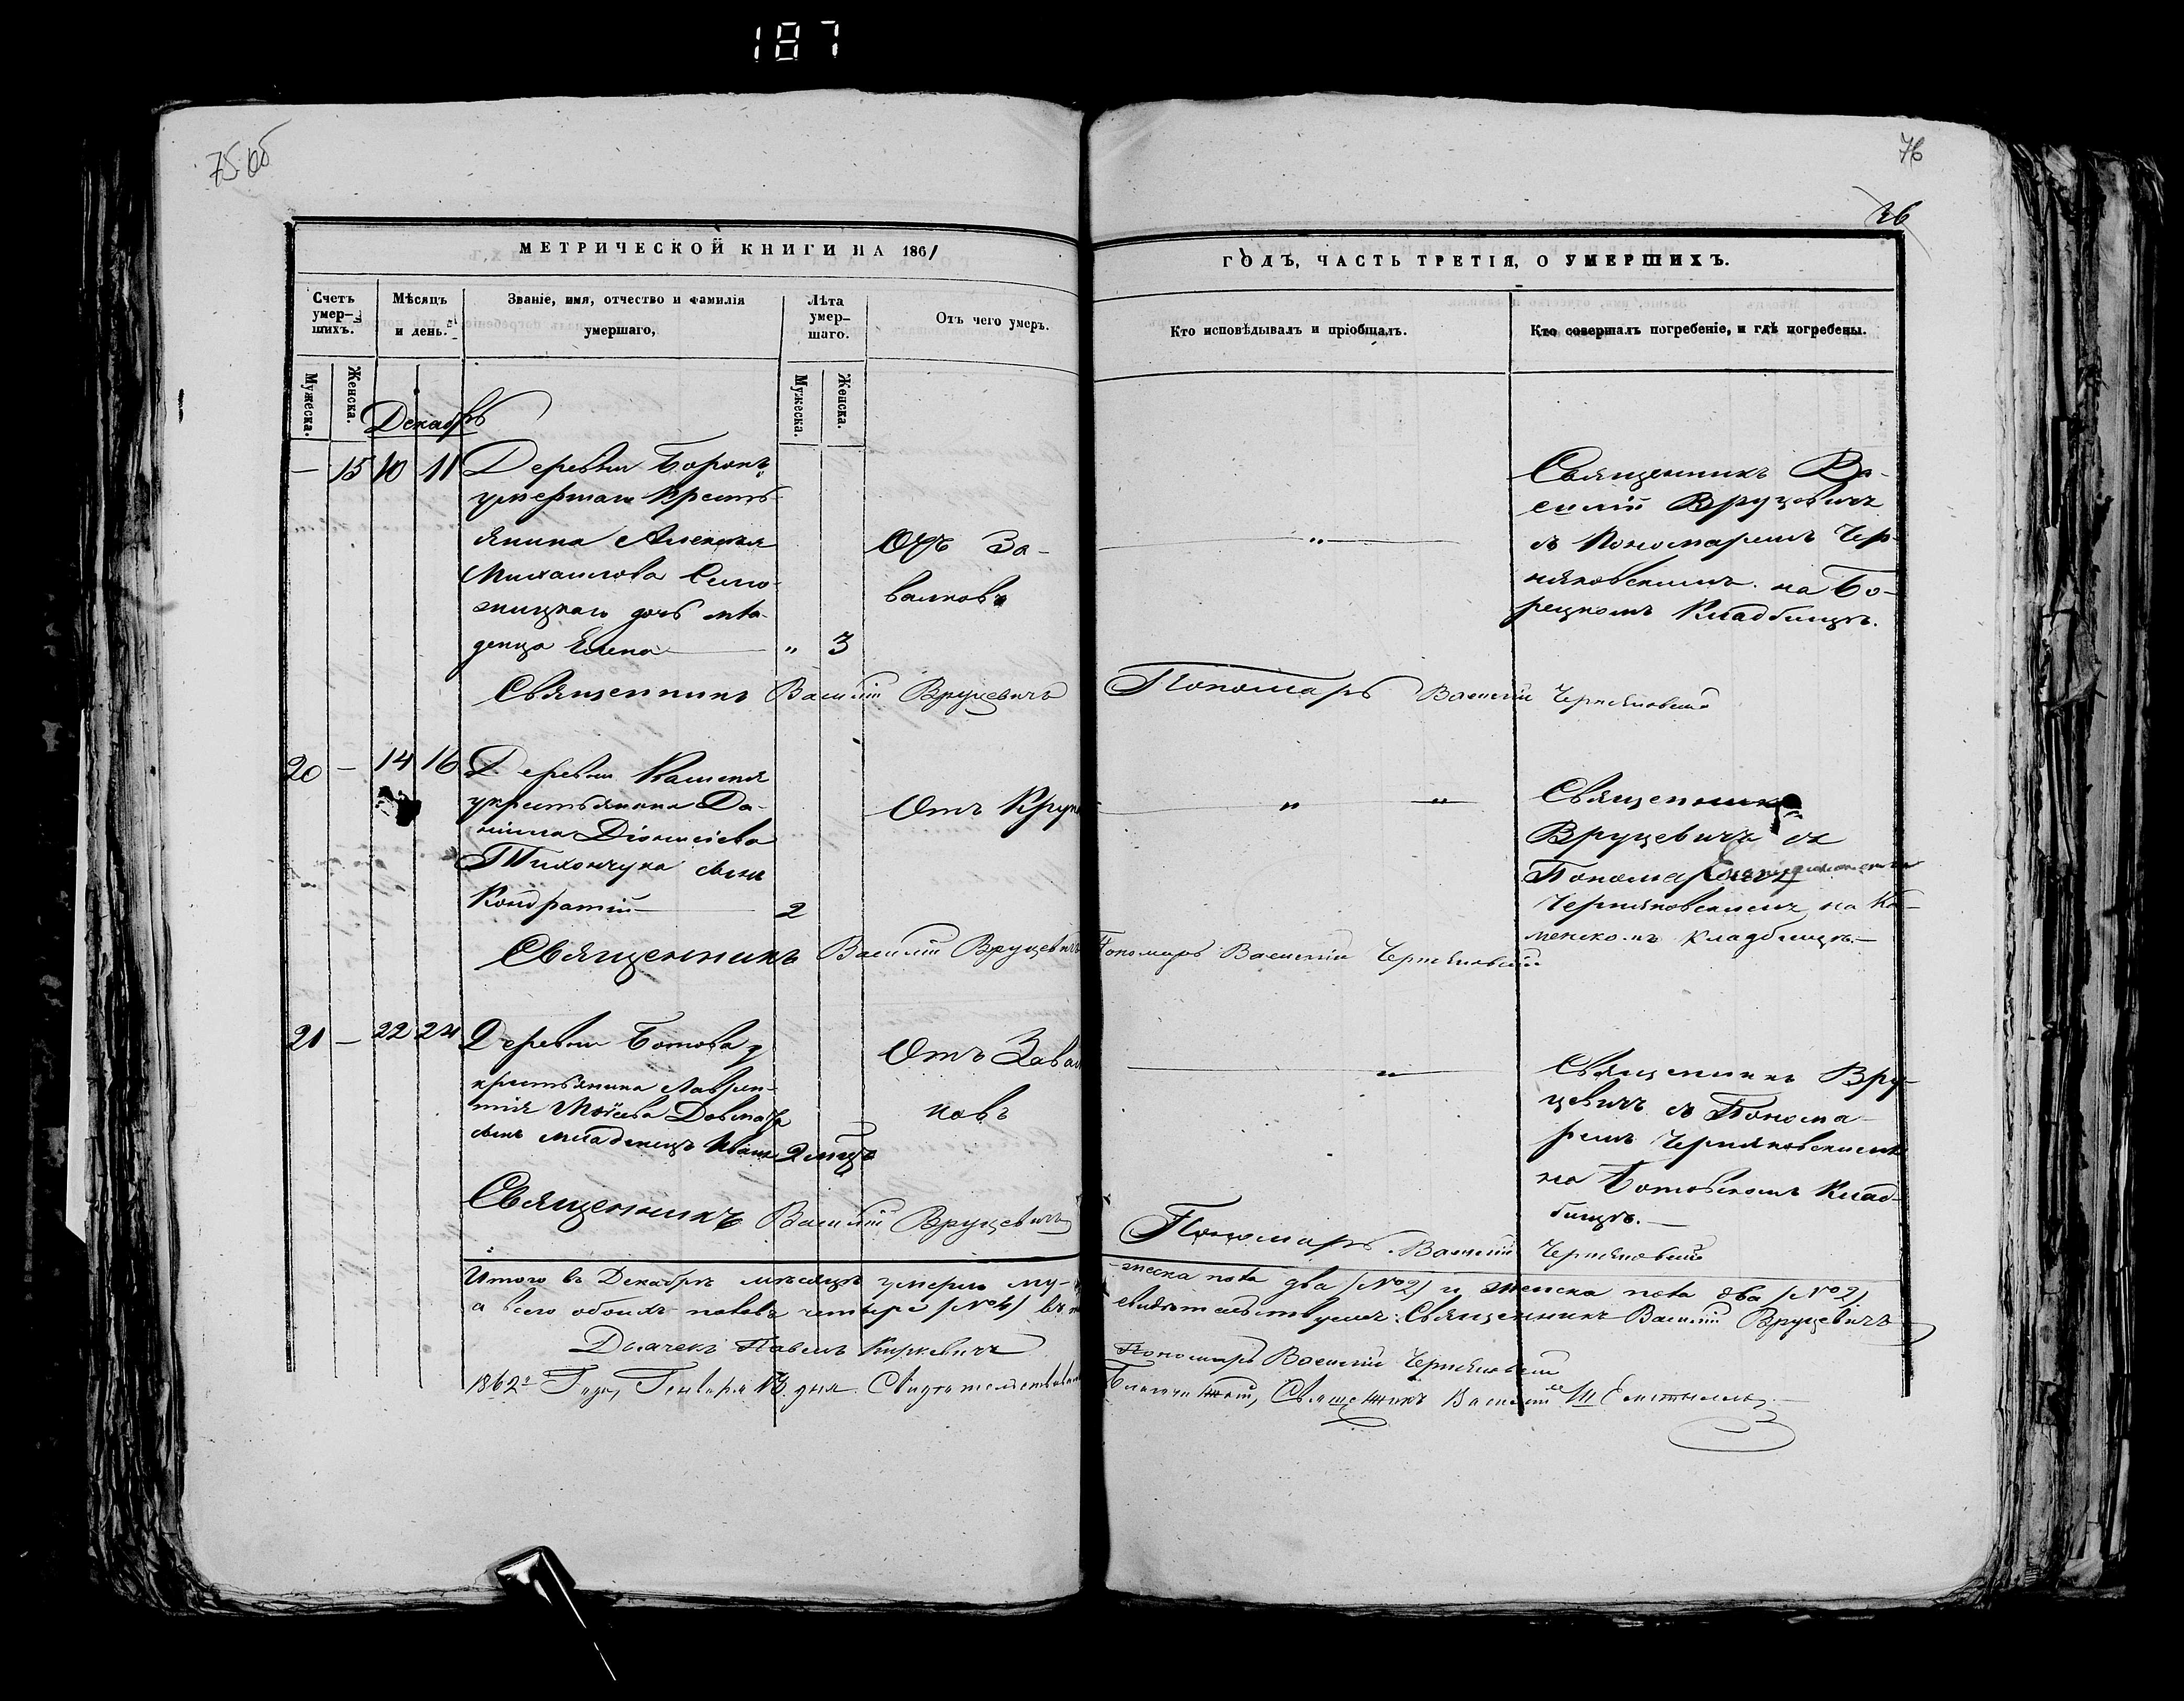 187
75 об
76
36
МЕТРИЧЕСКОЙ КНИГИ НА 1861
ГОДЪ, ЧАСТЬ ТРЕТІЯ, О УМЕРШИХЪ.
Счетъ умер-шихъ.
Мѣсяцъ и день.
Званіе, имя, отчество и фамилія умершаго,
Лѣта умер-шаго.
Отъ чего умеръ.
Кто исповѣдывалъ и пріобщалъ.
Кто совершалъ погребеніе, и гдѣ погребены.
Мужеска.
Женска.
Мужеска.
Женска.
Декабрь
— 15 10 11
Деревни Борокъ
умершаго Кресть-
янина Алексея
Михаилова
дочь мла-
денца Елена — " 3
Отъ За-
валковъ
— " —
Священникъ Ва-
силій Вруцевичъ
съ Пономаремъ Чер-
няковскимъ на Бо-
рецкомъ Кладбищѣ.
Священникъ Василій Вруцевичъ
Пономарь Василій Черняковскій
20 — 14 16
Деревни Каменя
у крестьянина Да-
ніила Діонисіева
Тихончука сынъ
Кондратій — 2
Отъ Круп
— " — " —
Священникъ
Вруцевичъ съ
Пономаремъ
Черняковскимъ на Ка-
менскомъ кладбищѣ.—
Священникъ Василій Вруцевичъ
Пономарь Василій Черняковскій
21 — 22 24
Деревни Ботова у
крестьянина Лаврен-
тія Моѵсеева
сынъ младенецъ Иванъ 2 мѣц
Отъ Завал
ковъ
— " —
Священникъ Вру-
цевичъ съ Понома-
ремъ Черняковскимъ
на Ботовскомъ Клад-
бищѣ.—
Священникъ Василій Вруцевичъ
Пономарь Василій Черняковскій
Итого въ Декабрѣ мѣсяцѣ умерло му-
жеска пола два (№ 2) и женска пола два (№ 2)
а всего обоихъ половъ четыре (№ 4) въ
свидѣтельствуемъ: Священникъ Василій Вруцевичъ
Дьячекъ Павелъ Киркевичъ
Пономарь Василій Черняковскій
1862го Года, Генваря 13 дня. Свидѣтельствовалъ
Благочинный, Священникъ Василій